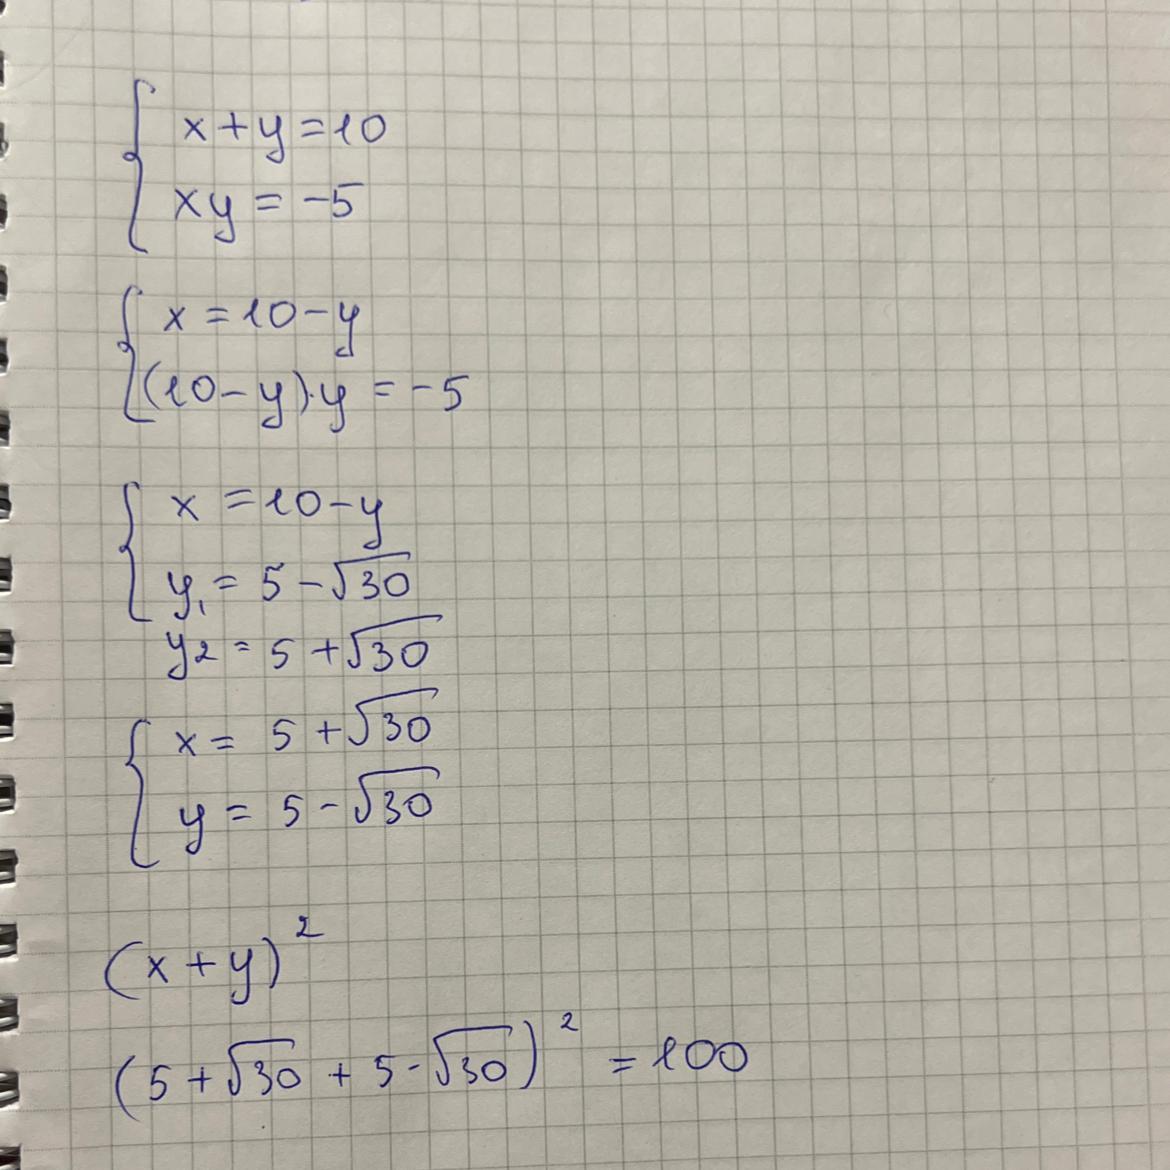 x+y=10
xy=-5
x=10-y
(10-y)·y=-5
x=10-y
y₁=5-√30
y2=5+√30
x=5+√30
y=5-√30
(x+y)²
(5+√30+5-√30)²=100